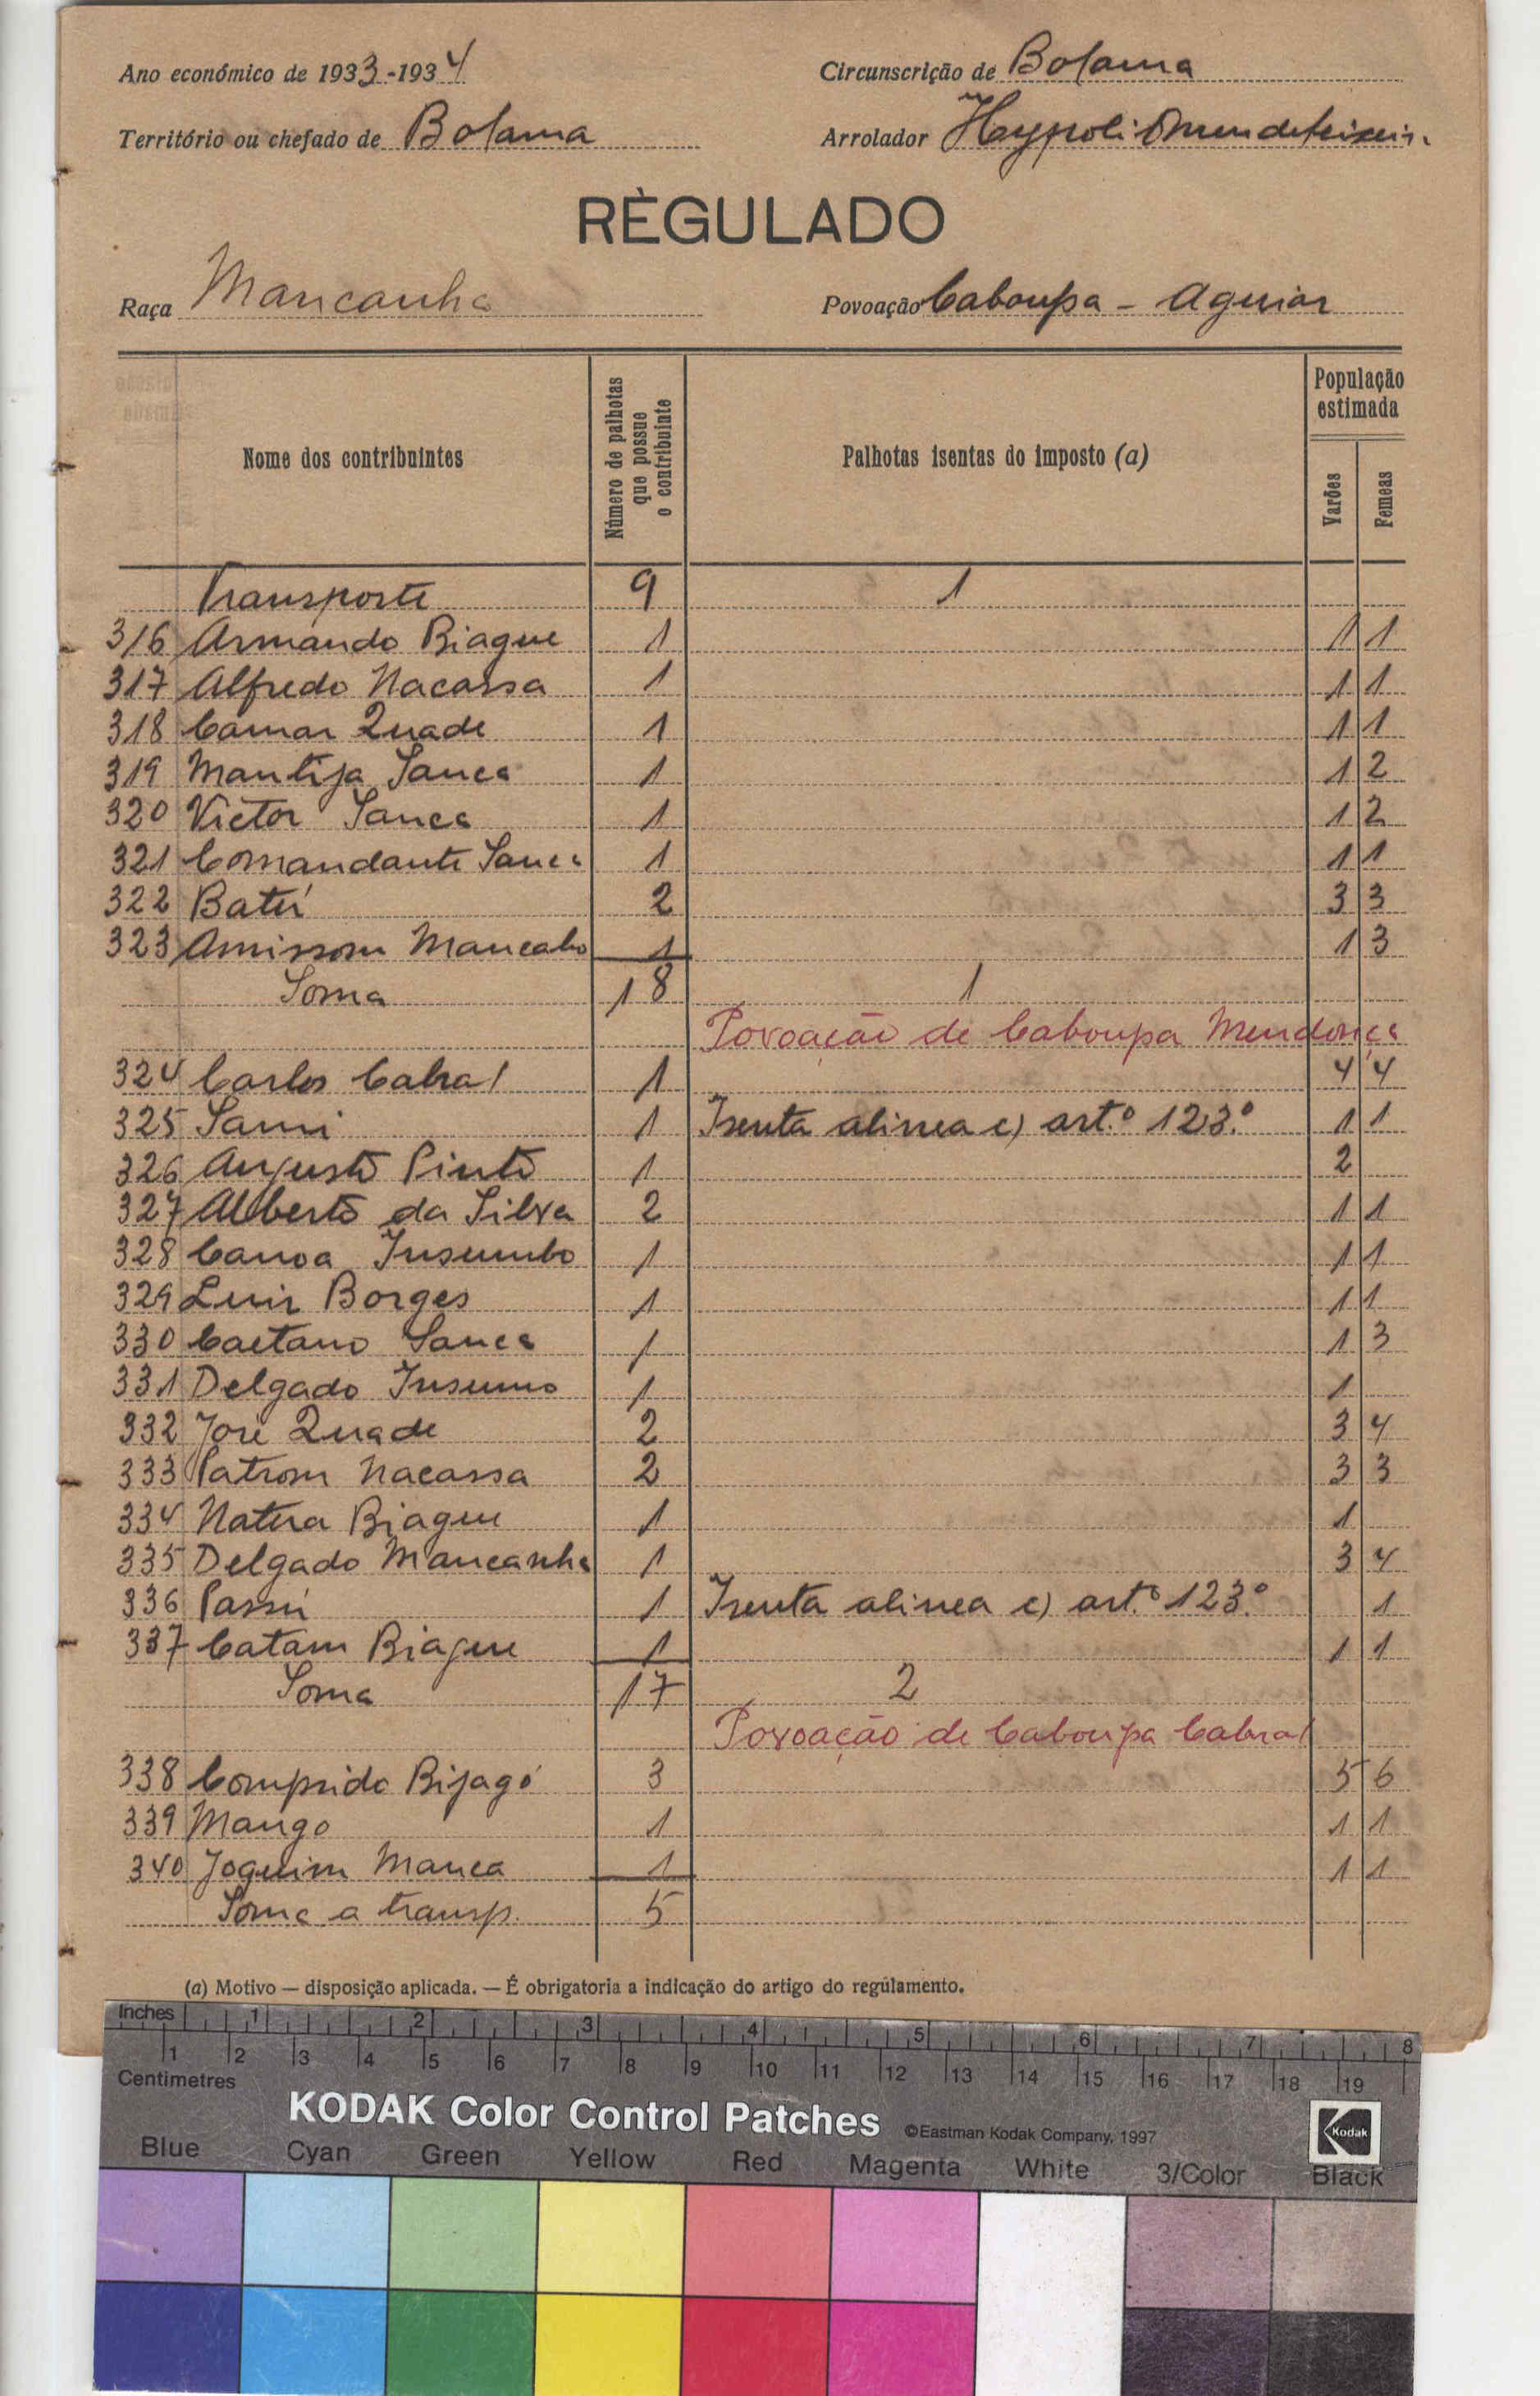 Ano económico de 1933-1934
Circunscrição de Bolama
Território ou chefado de Bolama
Arrolador
RÈGULADO
Raça Mancanha
Povoação Caboupa - Aguiar
Nome dos contribuintes
Número de palhotas que possue o contribuinte
Palhotas isentas do imposto (a)
População estimada
Varões
Femeas
Transporte 9 1
316 Armando Biague 1 1 1
317 Alfredo Nacassa 1 1 1
318 Camar Quade 1 1 1
319 Mantija Sanca 1 1 2
320 Victor Sanca 1 1 2
321 Comandante Sanca 1 1 1
322 Batú 2 3 3
323 Amissom Mancaho 1 1 3
Soma 18 1
Povoação de Caboupa Mendonça
324 Carlos Cabral 1 4 4
325 Sami 1 Isenta alinea c) art.º 123.º 1 1
326 Augusto Pinto 1 2
327 Alberto da Silva 2 1 1
328 Canoa Insumbo 1 1 1
329 Luis Borges 1 1 1
330 Caetano Sanca 1 1 3
331 Delgado Insumo 1 1
332 José Quade 2 3 4
333 Patrom Nacassa 2 3 3
334 Natura Biague 1 1
335 Delgado Mancanha 1 3 4
336 Passú 1 Isenta alinea c) art.º 123.º 1
337 Catam Biague 1 1 1
Soma 17 2
Povoação de Caboupa Cabral
338 Comprido Bijagó 3 5 6
339 Mango 1 1 1
340 Joquim Manca 1 1 1
Soma a transp. 5
(a) Motivo — disposição aplicada. — É obrigatoria a indicação do artigo do regúlamento.
Inches 1 2 3 4 5 6 7 8
1 2 3 4 5 6 7 8 9 10 11 12 13 14 15 16 17 18 19
Centimetres
KODAK Color Control Patches ©Eastman Kodak Company, 1997 Kodak
Blue Cyan Green Yellow Red Magenta White 3/Color Black